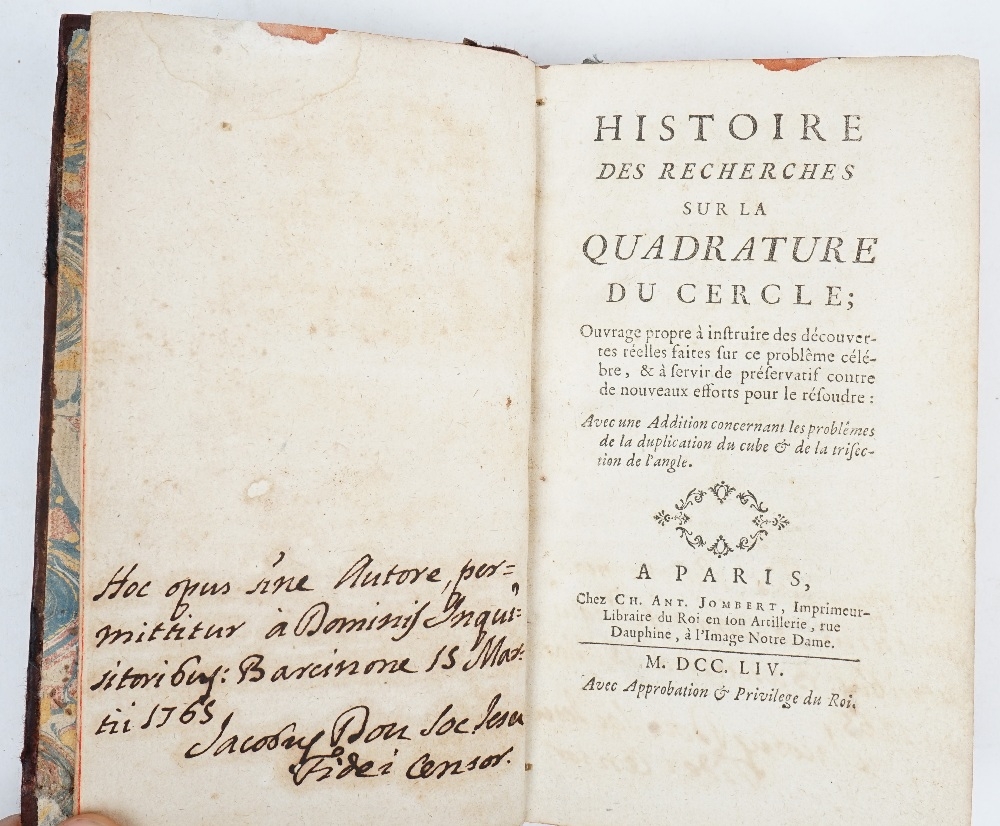 Hoc opus sine Autore, per=
mittitur à Dominis Inqui=
sitoribus: Barcinone 15 Mar=
tii 1765
Jacobus Dou Soc Jesu
Fidei Censor.
HISTOIRE
DES RECHERCHES
SUR LA
QUADRATURE
DU CERCLE;
Ouvrage propre à inſtruire des découver-
tes réelles faites ſur ce problême célé-
bre, & à ſervir de préſervatif contre
de nouveaux efforts pour le réſoudre :
Avec une Addition concernant les problêmes
de la duplication du cube & de la triſec-
tion de l'angle.
A PARIS,
Chez CH. ANT. JOMBERT, Imprimeur-
Libraire du Roi en ſon Artillerie, rue
Dauphine, à l'Image Notre Dame.
M. DCC. LIV.
Avec Approbation & Privilege du Roi.